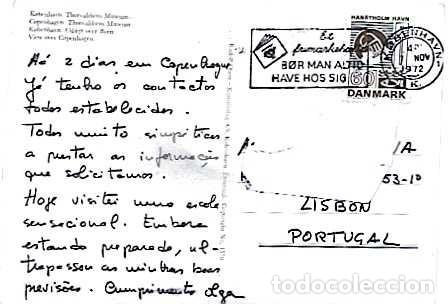 København. Thorvaldsens Museum.
Copenhagen. Thorvaldsens Museum.
København. Udsigt over Byen
View over Copenhagen.
Há 2 dias em Copenhague
já tenho os contactos
todos estabelecidos.
Todos muito simpáticos
a prestar as informações
que solicitamos.
Hoje visitei uma escola
sensacional. Embora
estando preparado, ul-
trapassou as minhas boas
previsões. Cumprimento
Et
frimærkelager
BØR MAN ALTID
HAVE HOS SIG
HANSTHOLM HAVN
60
DANMARK
KØBENHAVN
NOV
1972
K.
A
/A
53-1º
LISBON
PORTUGAL
todocoleccion